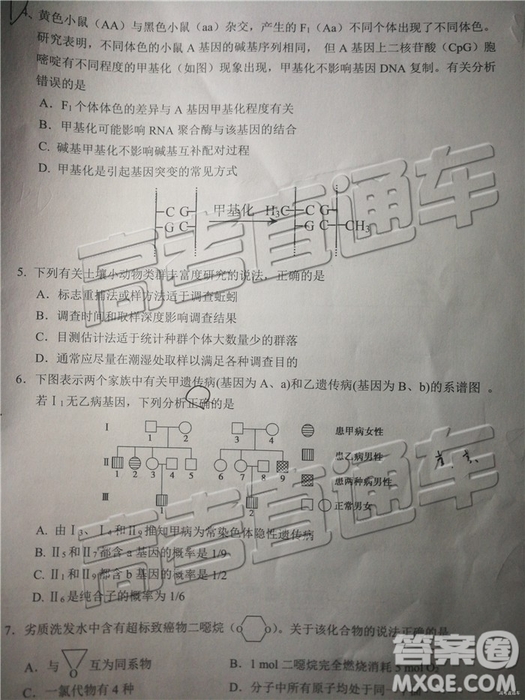 4、黄色小鼠（AA）与黑色小鼠（aa）杂交，产生的 F₁（Aa）不同个体出现了不同体色。
研究表明，不同体色的小鼠 A 基因的碱基序列相同，但 A 基因上二核苷酸（CpG）胞
嘧啶有不同程度的甲基化（如图）现象出现，甲基化不影响基因 DNA 复制。有关分析
错误的是
A．F₁ 个体体色的差异与 A 基因甲基化程度有关
B．甲基化可能影响 RNA 聚合酶与该基因的结合
C．碱基甲基化不影响碱基互补配对过程
D．甲基化是引起基因突变的常见方式
C G 甲基化 H₃C C G
G C G C CH₃
5．下列有关土壤小动物类群丰富度研究的说法，正确的是
A．标志重捕法或样方法适于调查蚯蚓
B．调查时间和取样深度影响调查结果
C．目测估计法适于统计种群个体大数量少的群落
D．通常应尽量在潮湿处取样以满足各种调查目的
6．下图表示两个家族中有关甲遗传病(基因为 A、a)和乙遗传病(基因为 B、b)的系谱图 。
若Ⅰ₁无乙病基因，下列分析正确的是
Ⅰ 1 2 3 4 患甲病女性
Ⅱ 1 2 3 4 5 6 7 8 9 患乙病男性
患两种病男性
Ⅲ 1 2 正常男女
A. 由Ⅰ₃、Ⅰ₄和Ⅱ₉推知甲病为常染色体隐性遗传病
B. Ⅱ₅和Ⅱ₇都含 a 基因的概率是 1/9
C. Ⅱ₁和Ⅱ₉都含 b 基因的概率是 1/2
D. Ⅱ₆是纯合子的概率为 1/6
7．劣质洗发水中含有超标致癌物二噁烷（O O）。关于该化合物的说法正确的是
A．与 O 互为同系物 B．1 mol 二噁烷完全燃烧消耗 5 mol O₂
C．一氯代物有 4 种 D．分子中所有原子均处于同一
高考直通车
高考直通车
高考直通车
答案圈
MXQE.COM